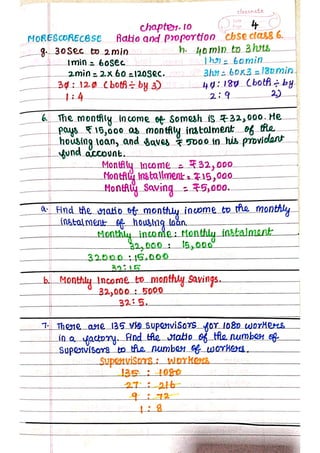 classmate
Date
Page 4
chapter. 10
MORESCORECBSE Ratio and Proportion Cbse class 6.
g. 30Sec to 2min h. 40min to 3 hrs
1min = 60Sec 1hr = 60min
2min = 2x60 = 120Sec. 3hr = 60x3 = 180min
30 : 120 (both ÷ by 3) 40 : 180 (both ÷ by 2)
1 : 4 2 : 9
6. The monthly income of Somesh is ₹32,000. He
pays ₹15,000 as monthly instalment of the
housing loan, and saves ₹5000 in his provident
fund account.
Monthly Income = ₹32,000
Monthly Installment = ₹15,000
Monthly Saving = ₹5,000.
a. Find the ratio of monthly income to the monthly
instalment of housing loan
Monthly income : Monthly instalment
32,000 : 15,000
32000 : 15.000
32 : 15
b. Monthly Income to monthly Savings.
32,000 : 5000
32 : 5.
7. There are 135 Supervisors for 1080 workers
in a factory. Find the ratio of the number of
Supervisors to the number of workers.
Supervisors : workers
135 : 1080
27 : 216
9 : 72
1 : 8